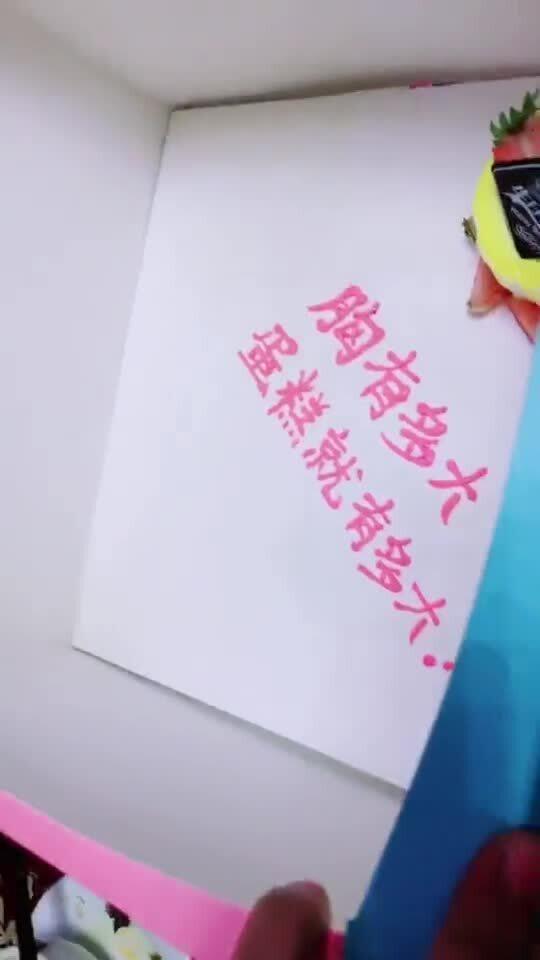 胸有多大
蛋糕就有多大..